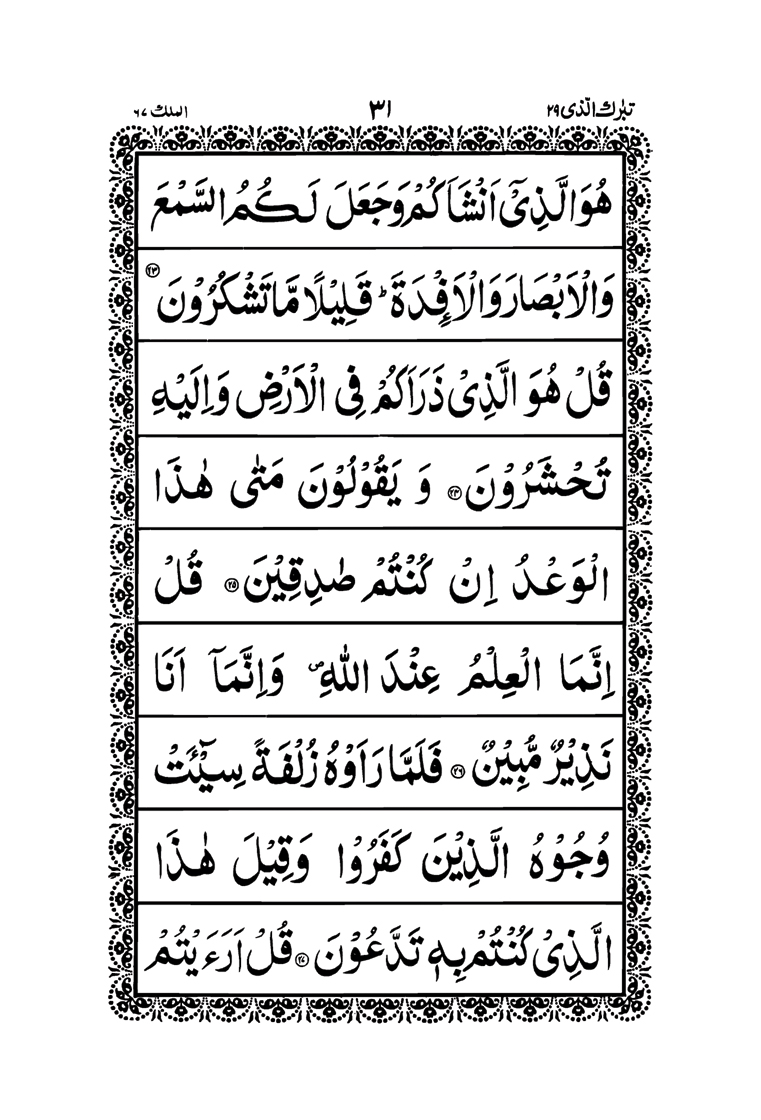 تبٰرك الّذى ٢٩ ٣١ الملك ٦٧
هُوَ الَّذِىْۤ اَنْشَاَكُمْ وَجَعَلَ لَـكُمُ السَّمْعَ
وَالْاَبْصَارَ وَالْاَفْـِٕدَةَ ؕ قَلِيْلًا مَّا تَشْكُرُوْنَ ﴿٢٣﴾
قُلْ هُوَ الَّذِىْ ذَرَاَكُمْ فِى الْاَرْضِ وَاِلَيْهِ
تُحْشَرُوْنَ ﴿٢٤﴾ وَ يَقُوْلُوْنَ مَتٰى هٰذَا
الْوَعْدُ اِنْ كُنْتُمْ صٰدِقِيْنَ ﴿٢٥﴾ قُلْ
اِنَّمَا الْعِلْمُ عِنْدَ اللّٰهِ ۖ وَاِنَّمَاۤ اَنَا
نَذِيْرٌ مُّبِيْنٌ ﴿٢٦﴾ فَلَمَّا رَاَوْهُ زُلْفَةً سِيْٓـَٔتْ
وُجُوْهُ الَّذِيْنَ كَفَرُوْا وَقِيْلَ هٰذَا
الَّذِىْ كُنْتُمْ بِهٖ تَدَّعُوْنَ ﴿٢٧﴾ قُلْ اَرَءَيْتُمْ